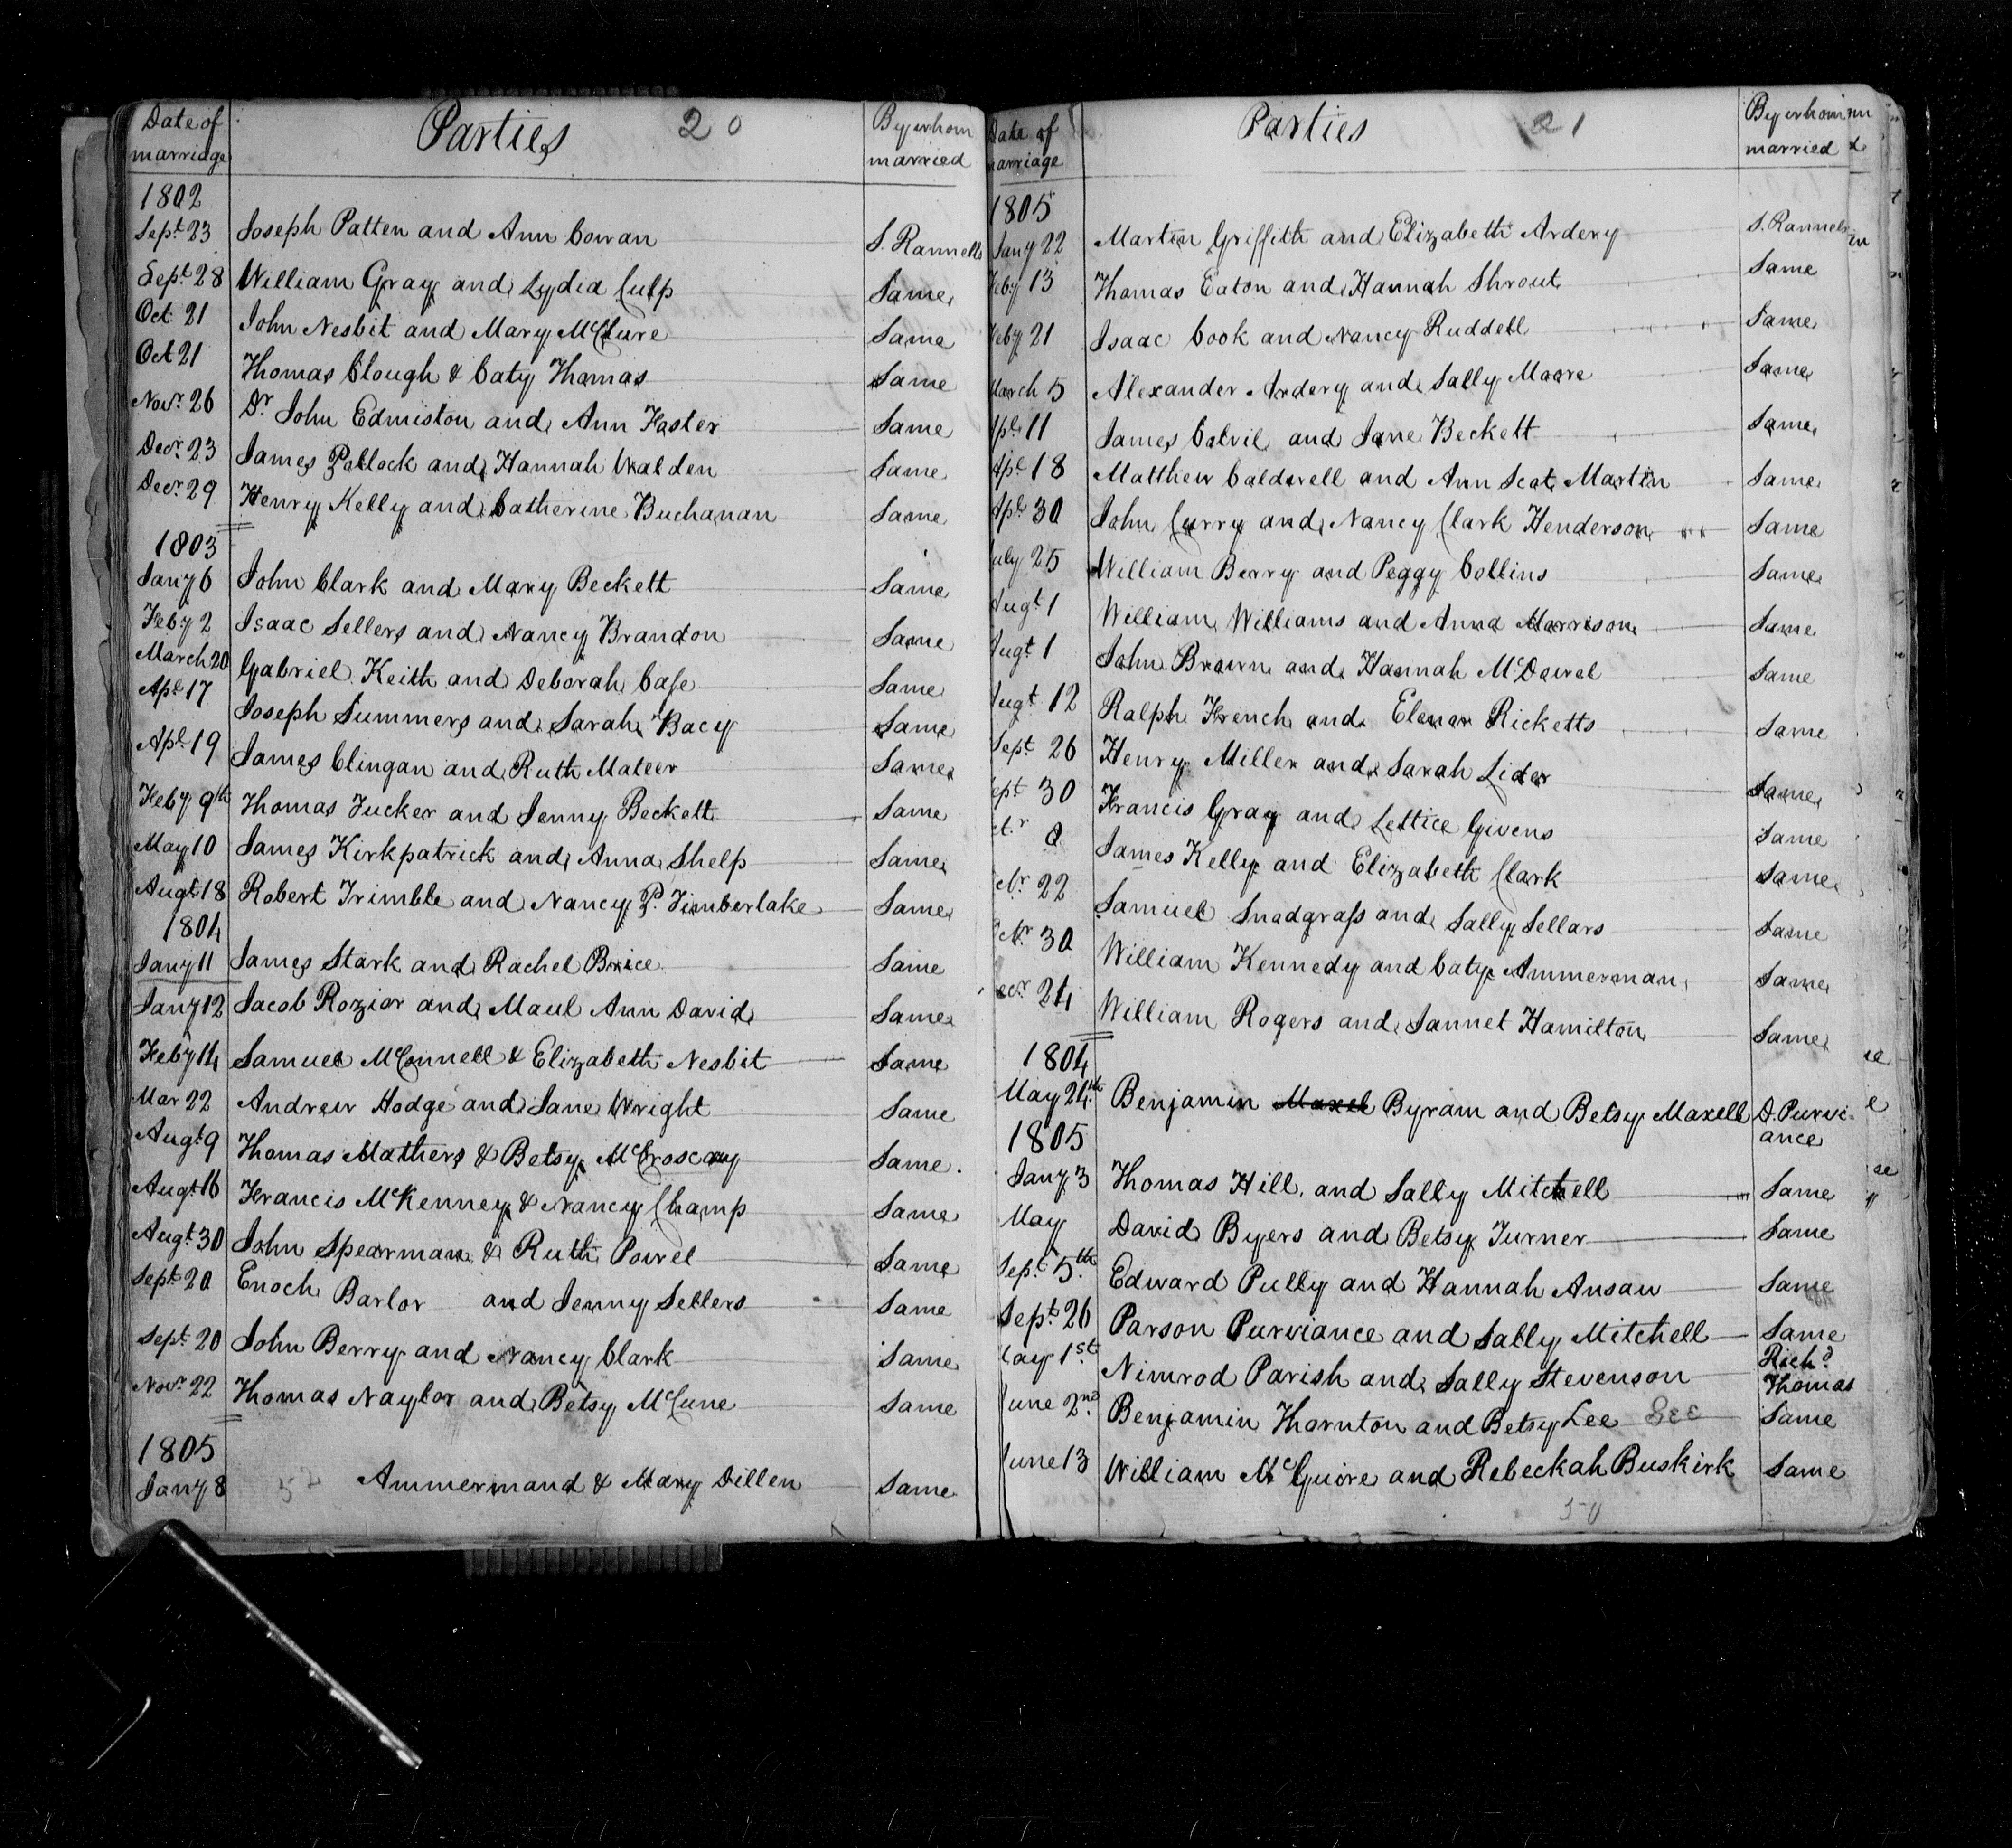 Date of marriage Parties 20 By whom married
1802
Sept. 23 Joseph Patten and Ann Cowan S. Rannells
Sept. 28 William Gray and Lydia Culp Same
Oct. 21 John Nesbit and Mary McClure Same
Oct 21 Thomas Clough & Caty Thomas Same
Novr. 26 Dr. John Edmiston and Ann Haster Same
Decr. 23 James Pollock and Hannah Walden Same
Decr. 29 Henry Kelly and Catherine Buchanan Same
1803
Jany 6 John Clark and Mary Beckett Same
Feby 2 Isaac Sellers and Nancy Brandon Same
March 20 Gabriel Keith and Deborah Case Same
Apl. 17 Joseph Summers and Sarah Bacy Same
Apl. 19 James Clingan and Ruth Mateer Same
Feby 9th Thomas Tucker and Jenny Beckett Same
May 10 James Kirkpatrick and Anna Shelp Same
Augt. 18 Robert Trimble and Nancy P. Timberlake Same
1804
Jany 11 James Stark and Rachel Brice Same
Jany 12 Jacob Rozior and Maul Ann David Same
Feby 14 Samuel McConnell & Elizabeth Nesbit Same
Mar 22 Andrew Hodge and Jane Wright Same
Augt. 9 Thomas Mathers & Betsy McCroscay Same.
Augt. 16 Francis McKenney & Nancy Champ Same
Augt. 30 John Spearman & Ruth Powel Same
Sept. 20 Enoch Barlor and Jenny Sellers Same
Sept. 20 John Berry and Nancy Clark Same
Novr. 22 Thomas Naylor and Betsy McCune Same
1805
Jany 8 52 Ammermand & Mary Dillen Same
Date of marriage Parties 21 By whom married
1805
Jany 22 Martin Griffith and Elizabeth Ardery S. Rannels
Feby 13 Thomas Eaton and Hannah Shrout Same
Feby 21 Isaac Cook and Nancy Ruddell Same
March 5 Alexander Ardery and Sally Moore Same
Apl. 11 James Calvil and Jane Beckett Same
Apl. 18 Matthew Caldwell and Ann Scot Martin Same
Apl. 30 John Curry and Nancy Clark Henderson Same
July 25 William Berry and Peggy Collins Same
Augt. 1 William Williams and Anna Morrison Same
Augt. 1 John Brown and Hannah McDowel Same
Augt. 12 Ralph French and Elenor Ricketts Same
Sept. 26 Henry Miller and Sarah Lider Same
Sept. 30 Francis Gray and Lettice Givens Same
ctr 8 James Kelly and Elizabeth Clark Same
ctr. 22 Samuel Snodgrass and Sally Sellars Same
ctr. 30 William Kennedy and Caty Ammerman Same
ecr. 24 William Rogers and Jannet Hamilton Same
1804
May 24th Benjamin Maxel Byram and Betsy Maxell D. Purvi-
ance
1805
Jany 3 Thomas Hill and Sally Mitchell Same
May David Byers and Betsy Turner Same
Sept. 5th. Edward Pully and Hannah Ansaw Same
Sept. 26 Parson Purviance and Sally Mitchell Same
ay 1st. Nimrod Parish and Sally Stevenson Richd. Thomas
June 2nd. Benjamin Thornton and Betsy Lee Lee Same
June 13 William McGuire and Rebeckah Buskirk Same
50